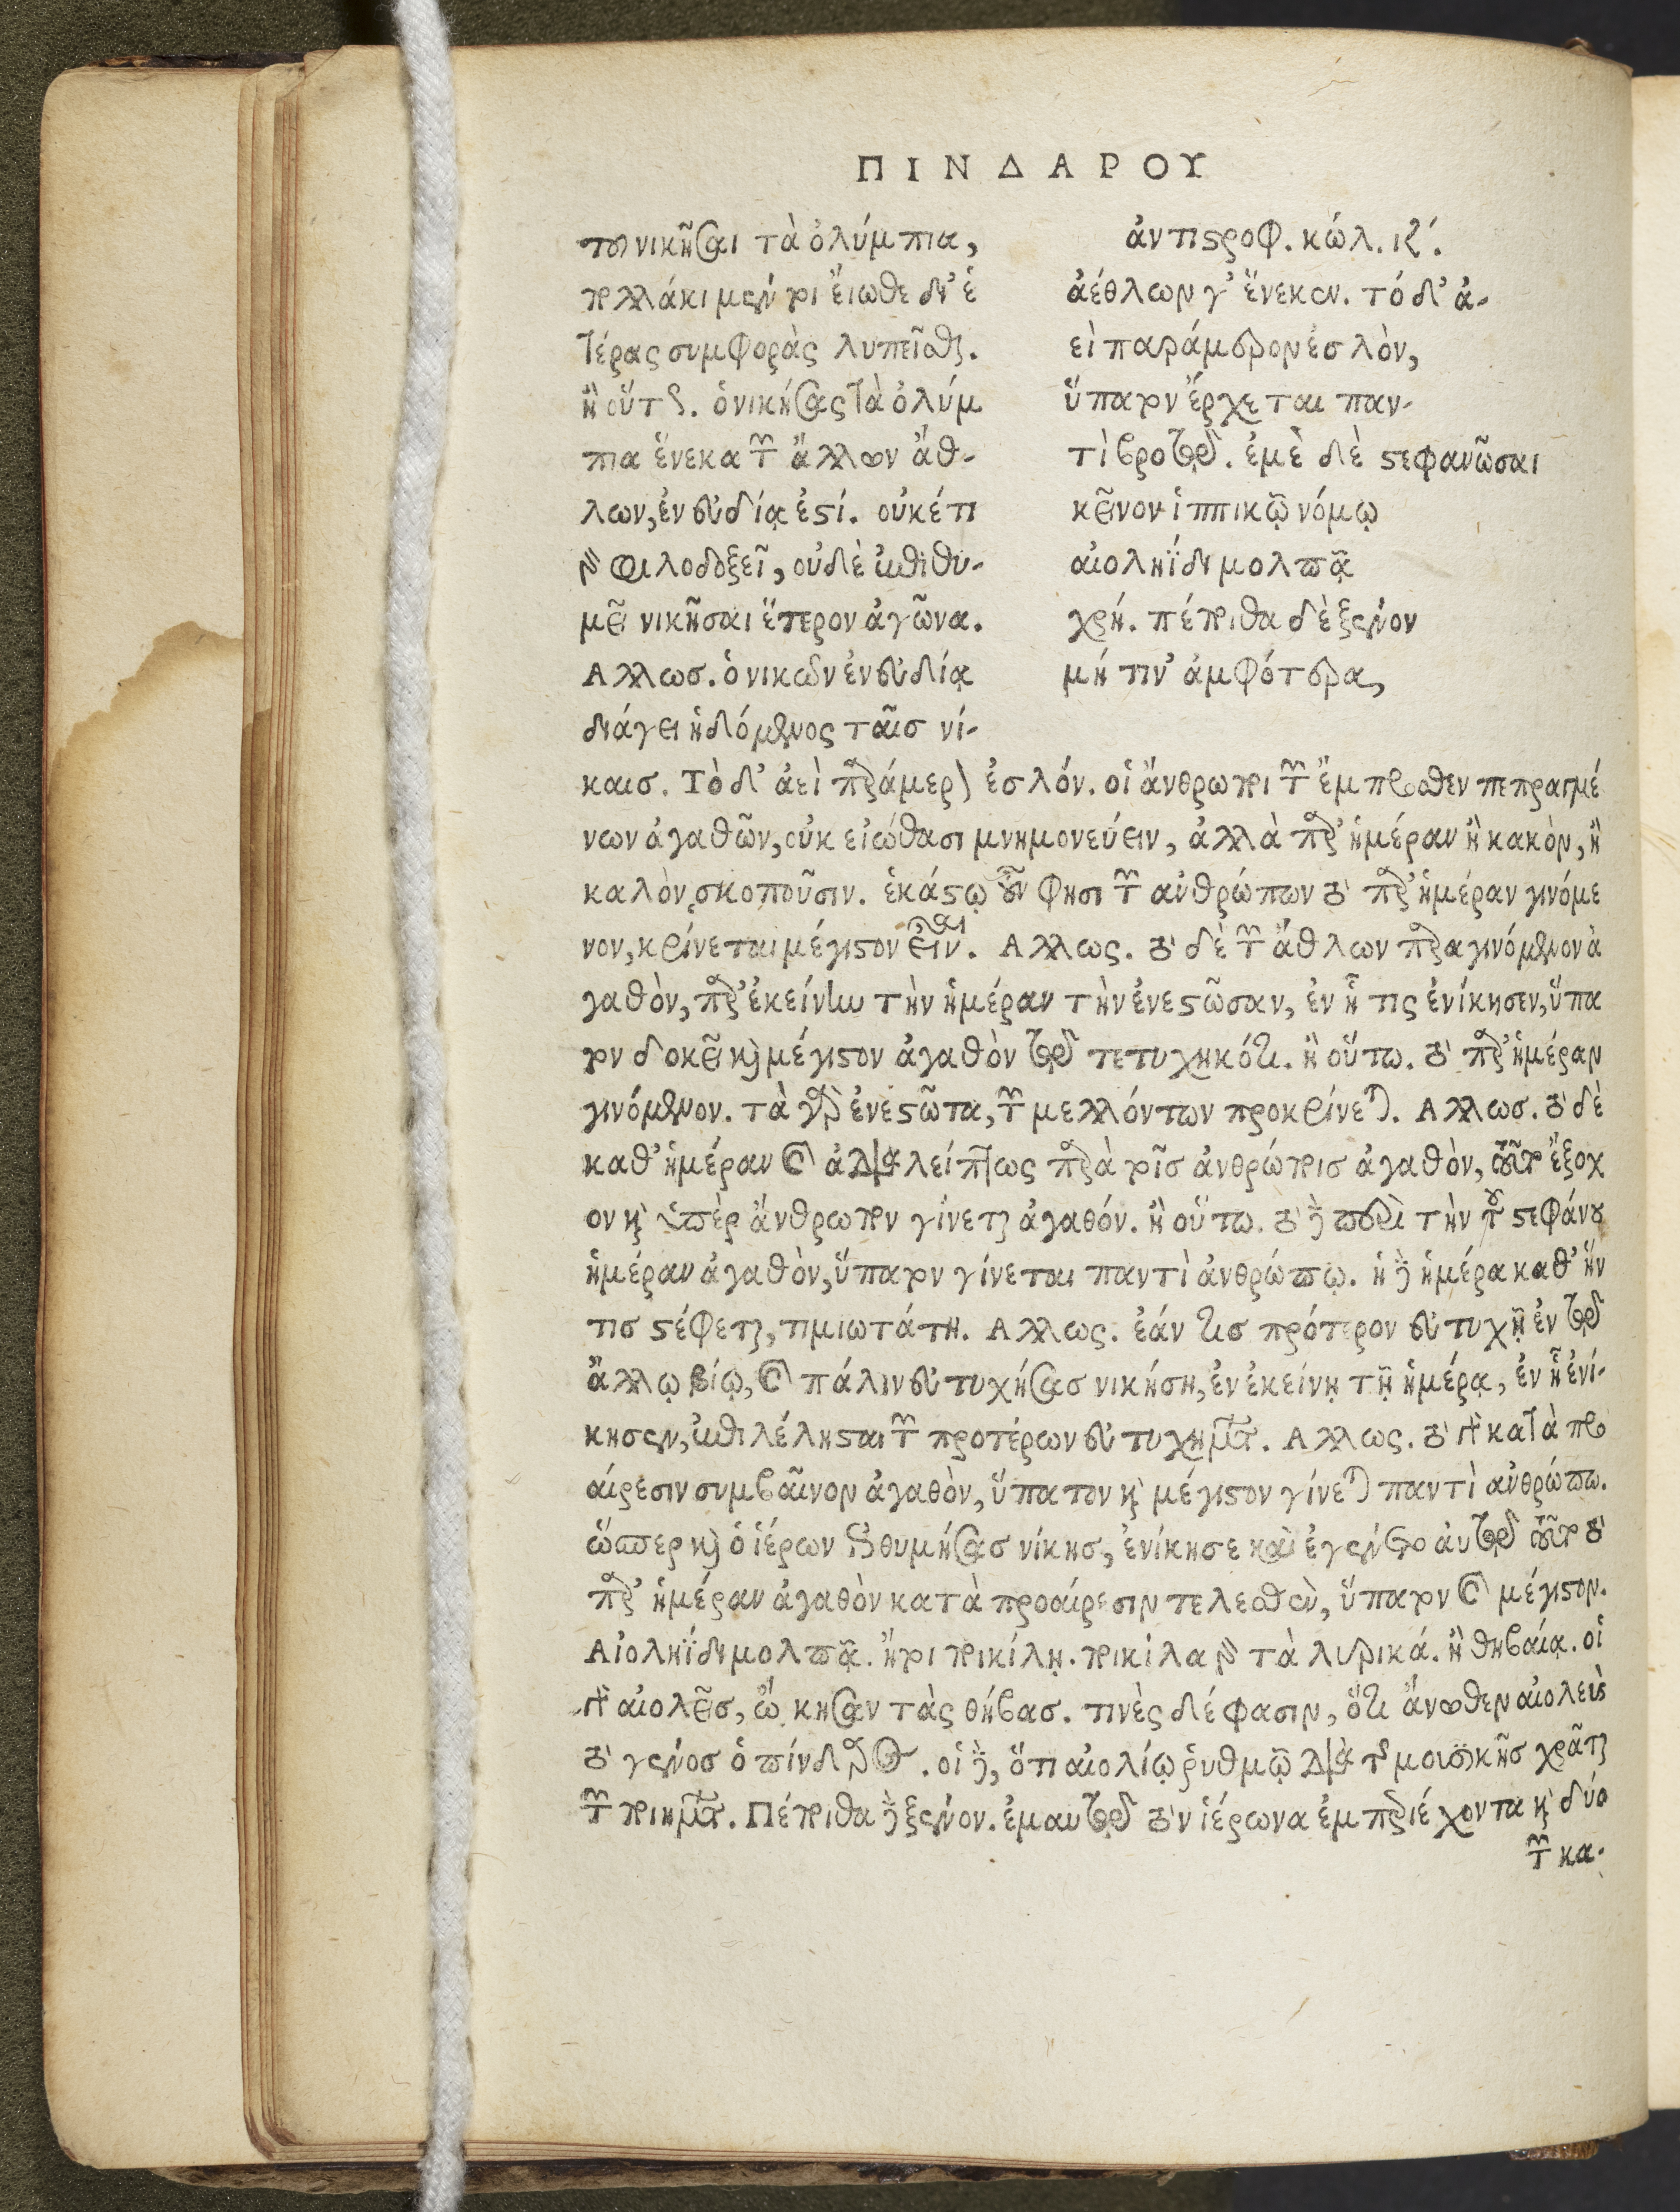 ΠΙΝΔΑΡΟΥ
του νικῆσαι τὰ ὀλύμπια,
πολλάκι μέν τοι εἴωθε δι' ἑ
τέρας συμφορὰς λυπεῖσθαι.
ἢ οὕτως. ὁ νικήσας τὰ ὀλύμ
πια ἕνεκα τῶν ἄλλων ἄθ-
λων, ἐν εὐδίᾳ ἐστί. οὐκέτι
γὰρ φιλοδοξεῖ, οὐδὲ ἐπιθυ-
μεῖ νικῆσαι ἕτερον ἀγῶνα.
Αλλωσ. ὁ νικῶν ἐν εὐδίᾳ
διάγει ἡδόμενος ταῖσ νί-
ἀντιστροφ. κώλ. ιζ'.
ἀέθλων γ' ἕνεκεν. τὸ δ' ἀ-
εὶ παράμερον ἐσλὸν,
ὕπατον ἔρχεται παν-
τὶ βροτῷ. ἐμὲ δὲ στεφανῶσαι
κεῖνον ἱππικῷ νόμῳ
αἰοληΐδι μολπᾷ
χρή. πέποιθα δὲ ξένον
μή τιν' ἀμφότερα,
καισ. Τὸ δ' ἀεὶ παράμερον ἐσλόν. οἱ ἄνθρωποι τῶν ἔμπροσθεν πεπραγμέ
νων ἀγαθῶν, οὐκ εἰώθασι μνημονεύειν, ἀλλὰ παρ' ἡμέραν ἢ κακὸν, ἢ
καλὸν σκοποῦσιν. ἑκάστῳ οὖν φησι τῶν ἀνθρώπων τὸ παρ' ἡμέραν γινόμε
νον, κρίνεται μέγιστον εἶναι. Αλλως. τὸ δὲ τῶν ἄθλων παραγινόμενον ἀ
γαθὸν, παρ' ἐκείνην τὴν ἡμέραν τὴν ἐνεστῶσαν, ἐν ᾗ τις ἐνίκησεν, ὕπα
τον δοκεῖ καὶ μέγιστον ἀγαθὸν τῷ τετυχηκότι. ἢ οὕτω. τὸ παρ' ἡμέραν
γινόμενον. τὰ γὰρ ἐνεστῶτα, τῶν μελλόντων προκρίνεται. Αλλωσ. τὸ δὲ
καθ' ἡμέραν καὶ ἀδιαλείπτως παρὰ τοῖσ ἀνθρώποισ ἀγαθὸν, τοῦτο ἔξοχ
ον καὶ ὑπὲρ ἄνθρωπον γίνεται ἀγαθόν. ἢ οὕτω. τὸ δὲ περὶ τὴν τοῦ στεφάνου
ἡμέραν ἀγαθὸν, ὕπατον γίνεται παντὶ ἀνθρώπῳ. ἡ δὲ ἡμέρα καθ' ἥν
τισ στέφεται, τιμιωτάτη. Αλλως. ἐάν τισ πρότερον εὐτυχῇ ἐν τῷ
ἄλλῳ βίῳ, καὶ πάλιν εὐτυχήσασ νικήσῃ, ἐν ἐκείνῃ τῇ ἡμέρᾳ, ἐν ᾗ ἐνί-
κησεν, ἐπιλέλησται τῶν προτέρων εὐτυχημάτων. Αλλως. τὸ γὰρ κατὰ προ
αίρεσιν συμβαῖνον ἀγαθὸν, ὕπατον καὶ μέγιστον γίνεται παντὶ ἀνθρώπω.
ὥσπερ καὶ ὁ ἱέρων ἐπιθυμήσασ νίκησ, ἐνίκησε καὶ ἐγένετο αὐτῷ τοῦτο τὸ
παρ' ἡμέραν ἀγαθὸν κατὰ προαίρεσιν τελεσθὲν, ὕπατον καὶ μέγιστον.
Αἰοληΐδι μολπᾷ. ἤτοι ποικίλῃ. ποικίλα γὰρ τὰ λυρικά. ἢ θηβαίᾳ. οἱ
γὰρ αἰολεῖσ, ᾤκησαν τὰς θήβασ. τινὲς δέ φασιν, ὅτι ἄνωθεν αἰολεὺς
τὸ γένοσ ὁ πίνδαρος. οἱ δὲ, ὅτι αἰολίῳ ῥυθμῷ διὰ τῆς μουσικῆσ χρᾶται
τῶν ποιημάτων. Πέποιθα δὲ ξένον. ἐμαυτῷ τὸν ἱέρωνα ἐμπεριέχοντα καὶ δύο
τῶν κα-